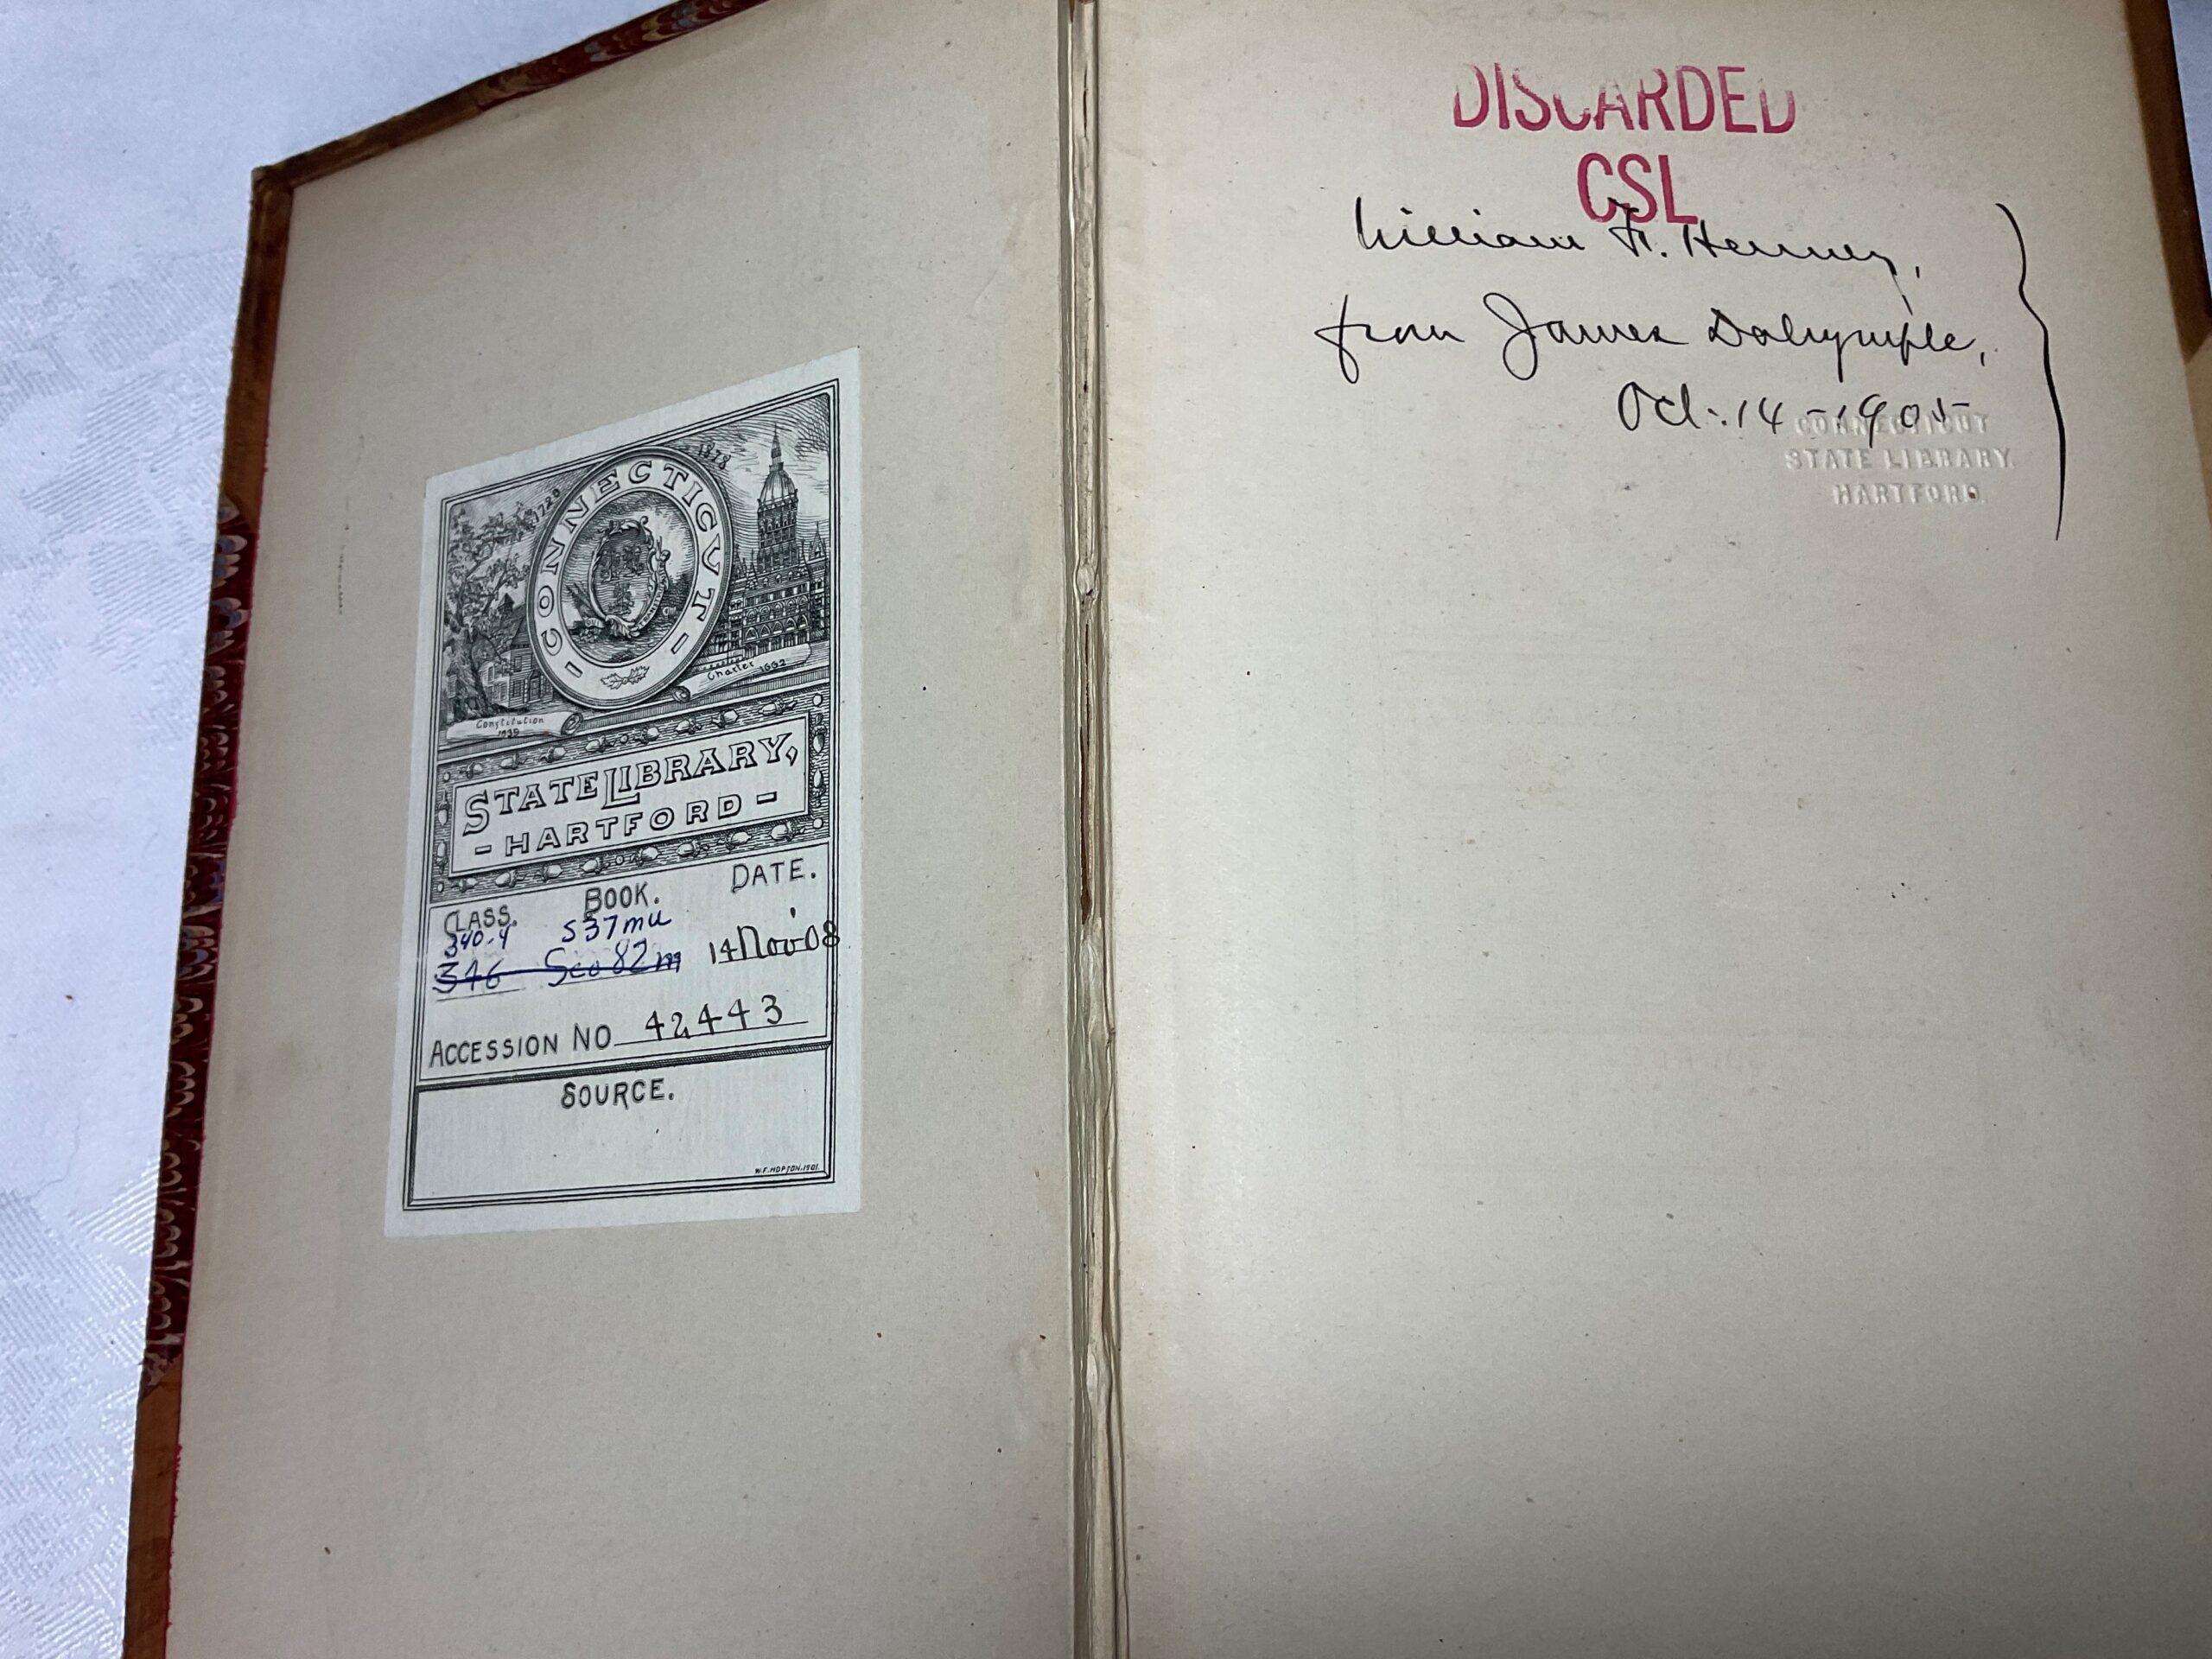 1720
1878
- CONNECTICUT -
Constitution
1639
Charter 1662
STATE LIBRARY,
- HARTFORD -
CLASS. BOOK. DATE.
340.4 S37mu
346 Sco82m 14 Nov '08
ACCESSION NO 42443
SOURCE.
W.F. HOPSON. 1901.
DISCARDED
CSL
William F. Henney,
from James Dalrymple,
Oct. 14 - 1905
CONNECTICUT
STATE LIBRARY.
HARTFORD.